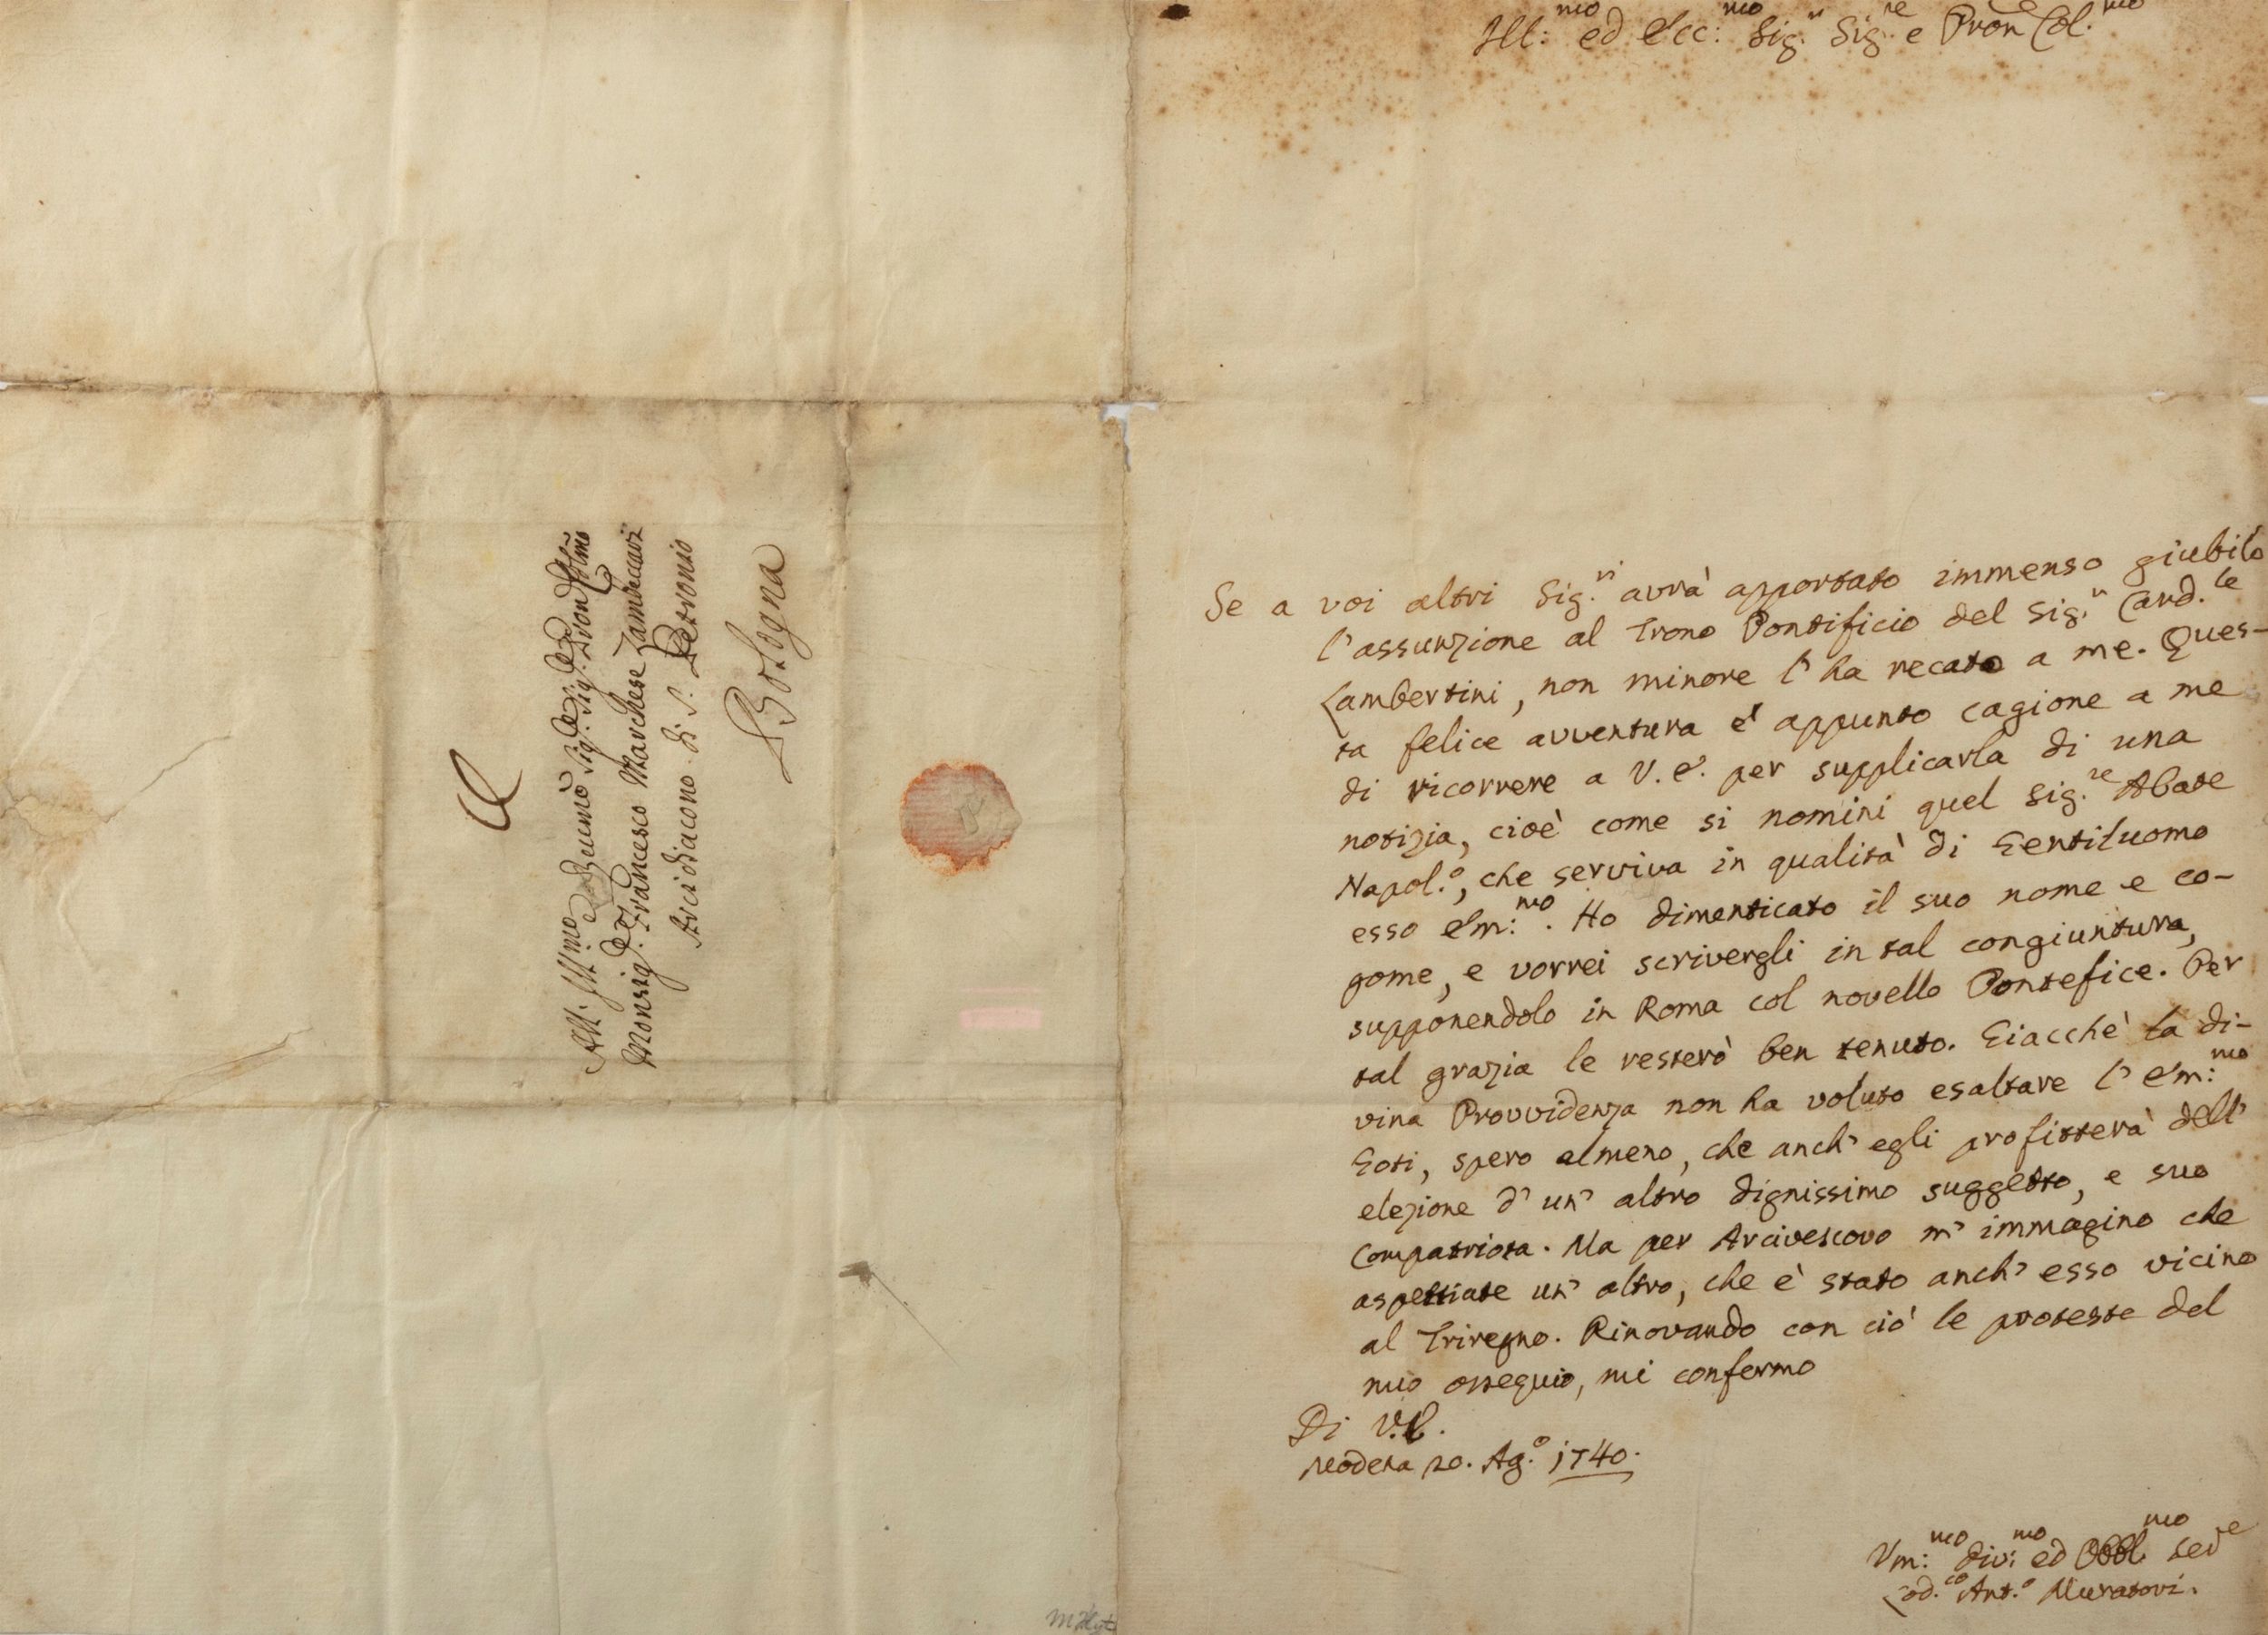 Ill:mo ed Ecc:mo Sig.r Sig.re e Pron Col.mo
Se a voi altri Sig.ri avrà apportato immenso giubilo
l'assunzione al Trono Pontificio del Sig.r Card.le
Lambertini, non minore l'ha recato a me. Ques-
ta felice avventura è appunto cagione a me
di ricorrere a V. E. per supplicarla di una
notizia, cioè come si nomini quel Sig.re Abate
Napol.o, che serviva in qualità di Gentiluomo
esso Em:mo. Ho dimenticato il suo nome e co-
gome, e vorrei scrivergli in tal congiuntura,
supponendolo in Roma col novello Pontefice. Per
tal grazia le resterò ben tenuto. Giacchè la di-
vina Provvidenza non ha voluto esaltare l'Em:mo
Goti, spero almeno, che anch'egli profitterà dell'
elezione d'un'altro dignissimo suggetto, e suo
Compatriota. Ma per Arcivescovo m'immagino che
aspettiate un'altro, che è stato anch'esso vicino
al Triregno. Rinovando con ciò le proteste del
mio ossequio, mi confermo
Di V.E.
Modena 20. Ag.o 1740.
Um:mo Div:mo ed Obbl.mo Ser.re
Lod.co Ant.o Muratori.
All. Illmo
Monsig. Francesco Marchese Zambeccari
Arcidiacono di S. Petronio
Bologna